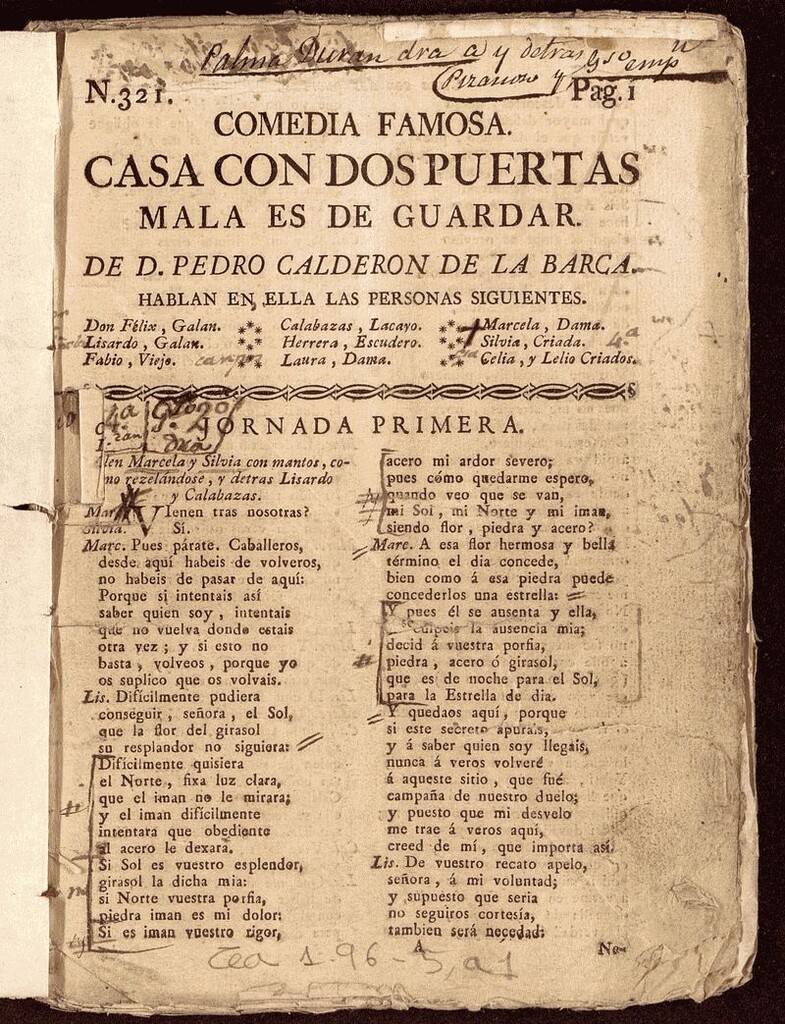 Palma Duran dra a) y detras
N.321.
Pag.1
COMEDIA FAMOSA.
CASA CON DOS PUERTAS
MALA ES DE GUARDAR.
DE D. PEDRO CALDERON DE LA BARCA.
HABLAN EN ELLA LAS PERSONAS SIGUIENTES.
Don Félix, Galan.
Lisardo, Galan.
Fabio, Viejo.
Calabazas, Lacayo.
Herrera, Escudero.
Laura, Dama.
Marcela, Dama.
Silvia, Criada. 4.a
Celia, y Lelio Criados.
JORNADA PRIMERA.
len Marcela y Silvia con mantos, co-
mo rezelándose, y detras Lisardo
y Calabazas.
Mar. VIenen tras nosotras?
Silvia. Sí.
Marc. Pues párate. Caballeros,
desde aquí habeis de volveros,
no habeis de pasar de aquí:
Porque si intentais así
saber quien soy, intentais
que no vuelva donde estais
otra vez; y si esto no
basta, volveos, porque yo
os suplico que os volvais.
Lis. Difícilmente pudiera
conseguir, señora, el Sol,
que la flor del girasol
su resplandor no siguiera:
Difícilmente quisiera
el Norte, fixa luz clara,
que el iman no le mirara;
y el iman difícilmente
intentara que obediente
al acero le dexara.
Si Sol es vuestro esplendor,
girasol la dicha mia:
si Norte vuestra porfia,
piedra iman es mi dolor:
Si es iman vuestro rigor,
acero mi ardor severo;
pues cómo quedarme espero,
quando veo que se van,
mi Sol, mi Norte y mi iman,
siendo flor, piedra y acero?
Marc. A esa flor hermosa y bella
término el dia concede,
bien como á esa piedra puede
concederlos una estrella:
Y pues él se ausenta y ella,
culpeis la ausencia mia;
decid á vuestra porfia,
piedra, acero ó girasol,
que es de noche para el Sol,
para la Estrella de dia.
Y quedaos aquí, porque
si este secreto apurais,
y á saber quien soy llegais,
nunca á veros volveré
á aqueste sitio, que fué
campaña de nuestro duelo;
y puesto que mi desvelo
me trae á veros aquí,
creed de mí, que importa así.
Lis. De vuestro recato apelo,
señora, á mi voluntad;
y supuesto que seria
no seguiros cortesía,
tambien será necedad:
A
Ne-
Tea 1-96-5, a1